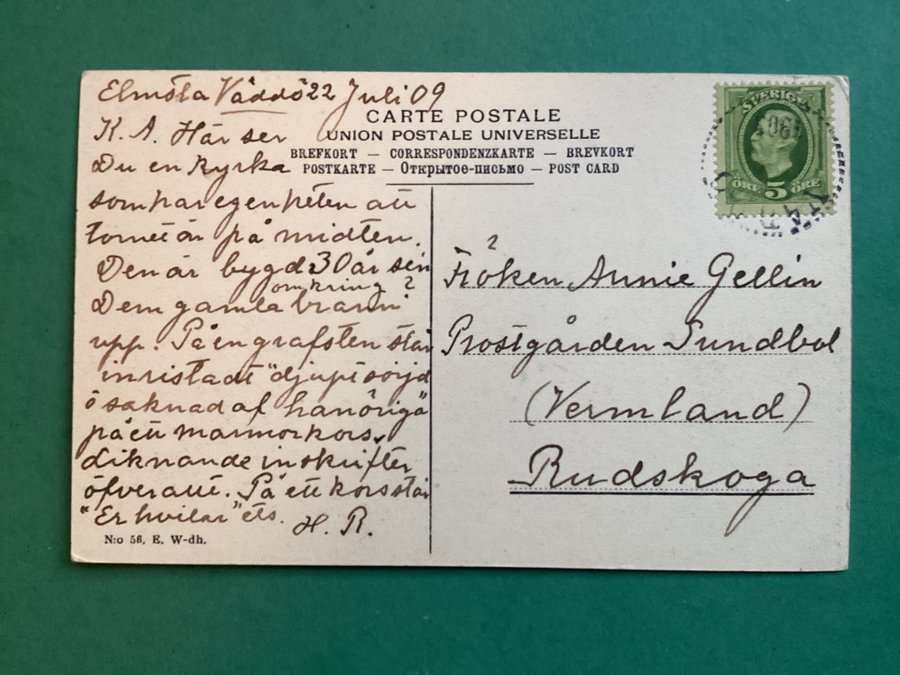 Elmsta Väddö 22 Juli 09
CARTE POSTALE
UNION POSTALE UNIVERSELLE
BREFKORT — CORRESPONDENZKARTE — BREVKORT
POSTKARTE — Открытое-письмо — POST CARD
K. A. Här ser
Du en Kyrka
som har egenheten att
tornet är på midten.
Den är bygd 30 år sen
omkring ?
Dem gamla brann
upp. På en grafsten står
inristadt "djupt sörjd
o saknad af hanöriga"
på ett marmorkors.
Liknande inskrifter
öfverallt. På ett kors står
"Er hvilar" ets.
H. R.
N:o 56, E. W-dh.
SVERIGE
5
ÖRE ÖRE
Fröken Annie Gellin
Prostgården Sundbol
(Vermland)
Rudskoga